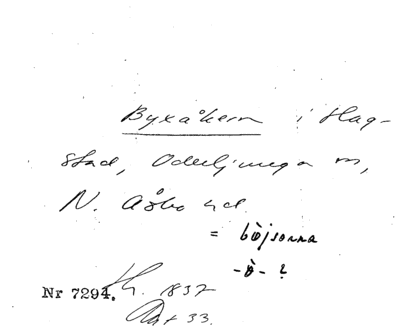 Byxåkern i Hag-
stad, Oderljunga sn,
N. Åsbo hd.
= bö̀jsorna
-ö̀- ?
Nr 7294. 1837
Akt 33.